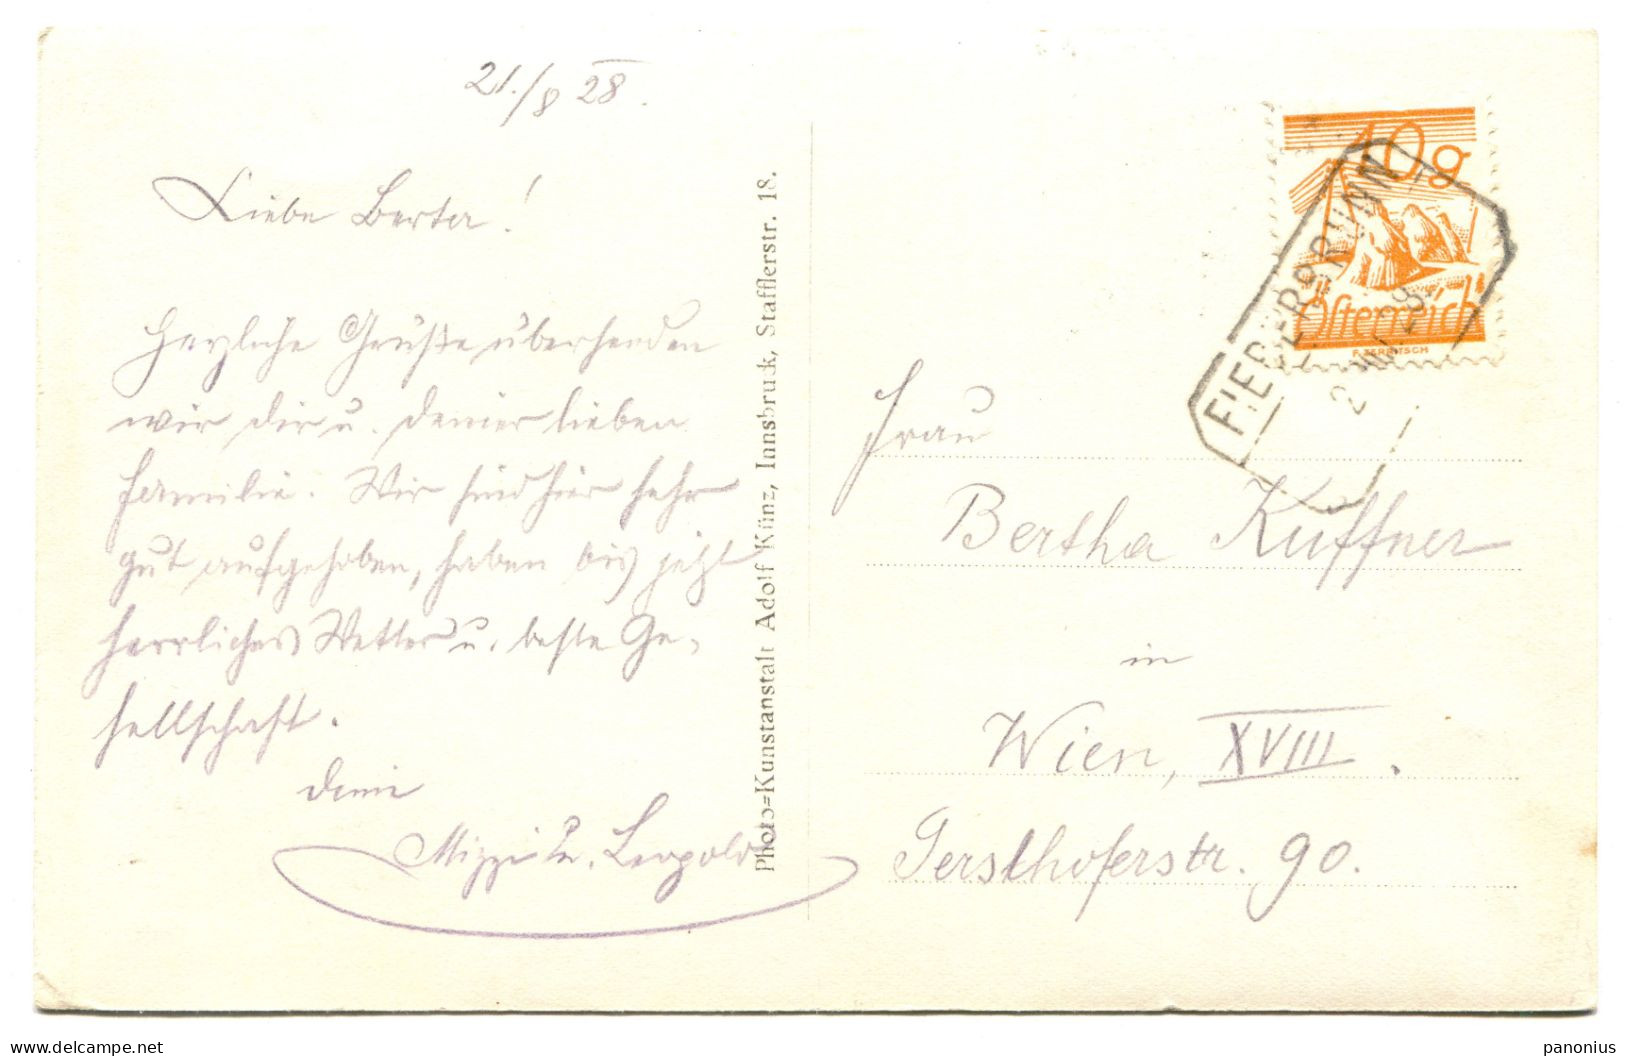 21./8 28.
Liebe Berta!
Herzliche Grüße übersenden
wir dir u. deiner lieben
Familie. Wir sind hier sehr
gut aufgehoben, haben bis jetzt
herrliches Wetter u. beste Ge-
sellschaft.
Deine
Mizzi u. Leopold
Photo=Kunstanstalt Adolf Künz, Innsbruck, Stafflerstr. 18.
10g
Österreich
FIEBERBRUNN
VIII 28
Frau
Bertha Kuffner
in
Wien, XVIII.
Gersthoferstr. 90.
delcampe.net
panonius